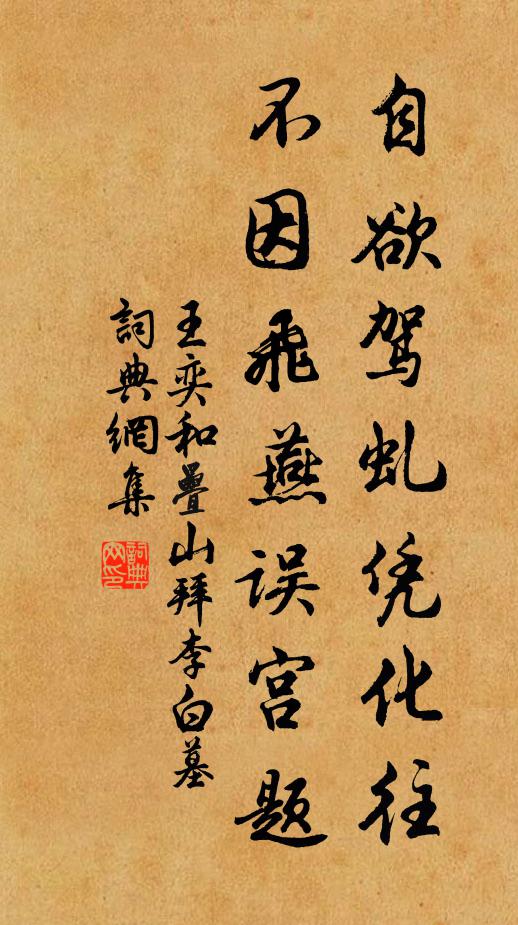 自欲驾虬凭化往
不因飛燕误宫题
王奕和疊山拜李白墓
詞典網集
詞典网印